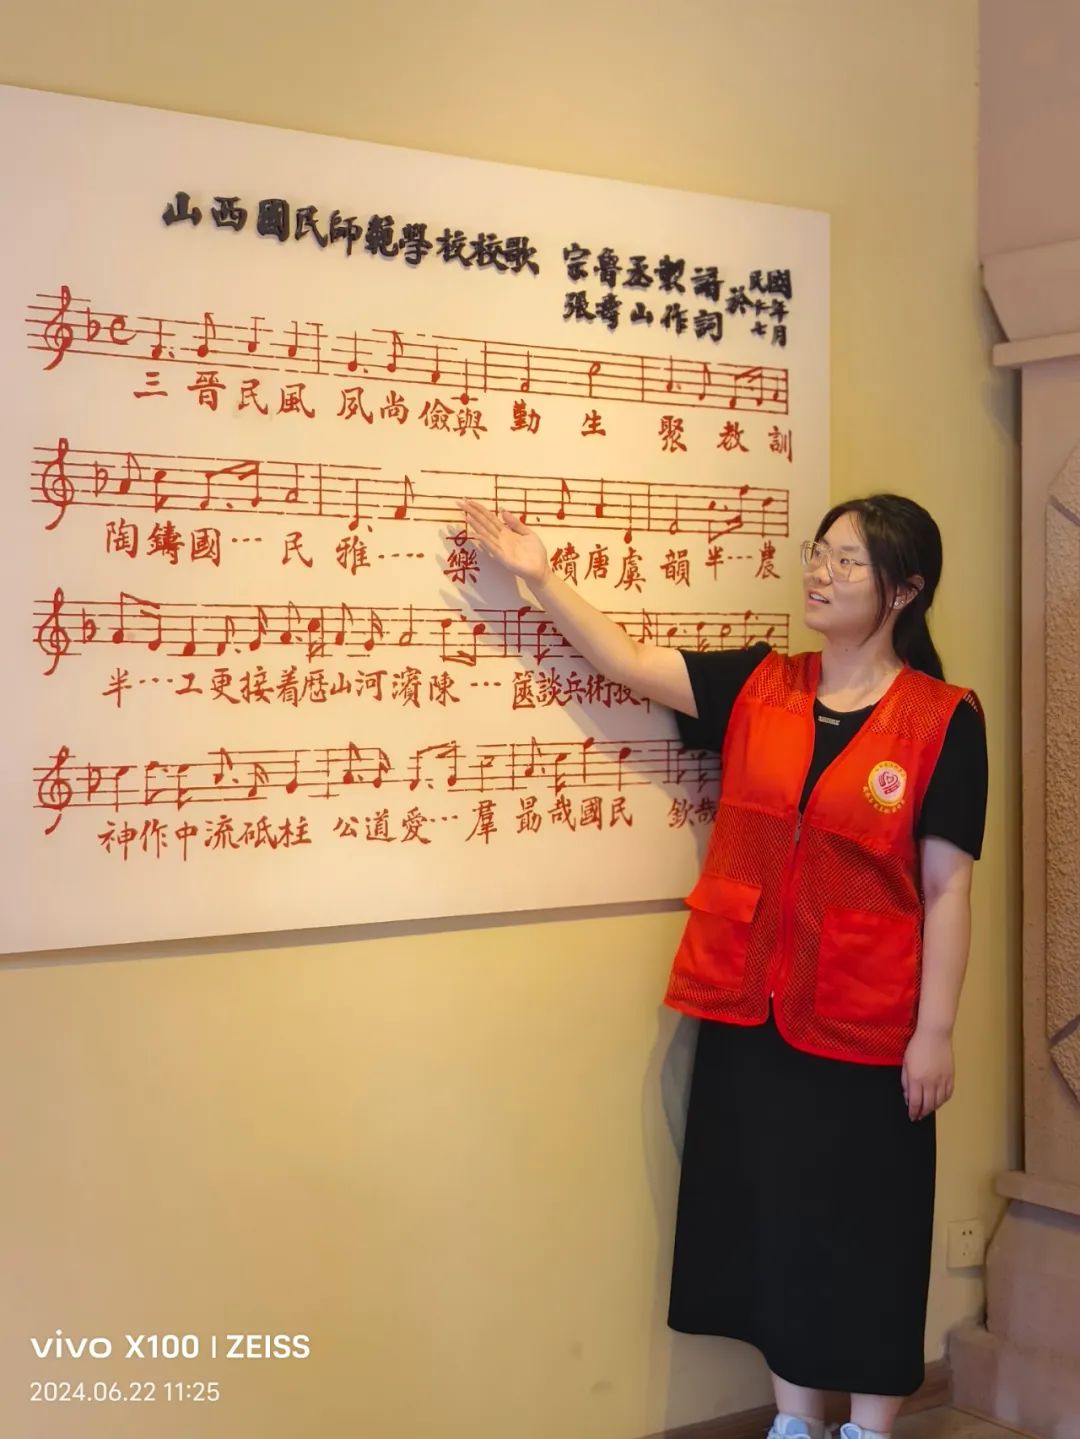 山西國民師範學校校歌
宗魯丞製譜
張壽山作詞
於民國
十年
七月
三晉民風 夙尚儉與勤生 聚教訓
陶鑄國···民雅····樂 續唐虞韻半···農
半···工更接着歷山河濱陳···篋談兵術
神作中流砥柱 公道愛···羣 勗哉國民 欽哉
vivo X100 | ZEISS
2024.06.22 11:25